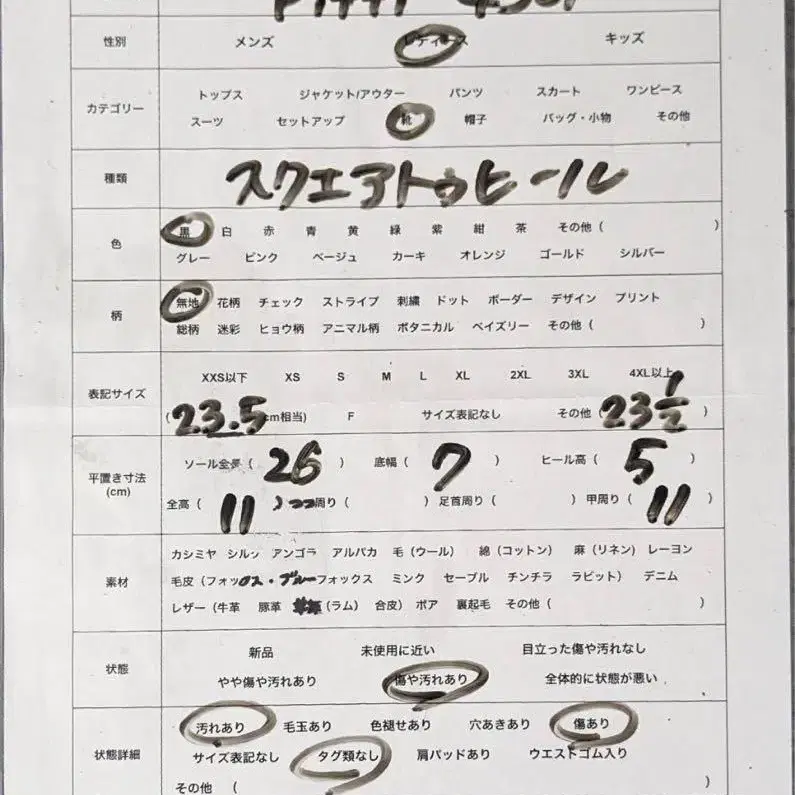 性別 メンズ レディース キッズ
カテゴリー
トップス ジャケット/アウター パンツ スカート ワンピース
スーツ セットアップ 靴 帽子 バッグ・小物 その他
種類 スクエアトゥヒール
色
黒 白 赤 青 黄 緑 紫 紺 茶 その他 ( )
グレー ピンク ベージュ カーキ オレンジ ゴールド シルバー
柄
無地 花柄 チェック ストライプ 刺繍 ドット ボーダー デザイン プリント
総柄 迷彩 ヒョウ柄 アニマル柄 ボタニカル ペイズリー その他 ( )
表記サイズ
XXS以下 XS S M L XL 2XL 3XL 4XL以上
(23.5cm相当) F サイズ表記なし その他 (23 1/2)
平置き寸法
(cm)
ソール全長 (26) 底幅 (7) ヒール高 (5)
全高 (11) つつ周り ( ) 足首周り ( ) 甲周り (11)
素材
カシミヤ シルク アンゴラ アルパカ 毛 (ウール) 綿 (コットン) 麻 (リネン) レーヨン
毛皮 (フォックス・ブルーフォックス ミンク セーブル チンチラ ラビット) デニム
レザー (牛革 豚革 (ラム) 合皮) ボア 裏起毛 その他 ( )
状態
新品 未使用に近い 目立った傷や汚れなし
やや傷や汚れあり 傷や汚れあり 全体的に状態が悪い
状態詳細
汚れあり 毛玉あり 色褪せあり 穴あきあり 傷あり
サイズ表記なし タグ類なし 肩パッドあり ウエストゴム入り
その他 ( )